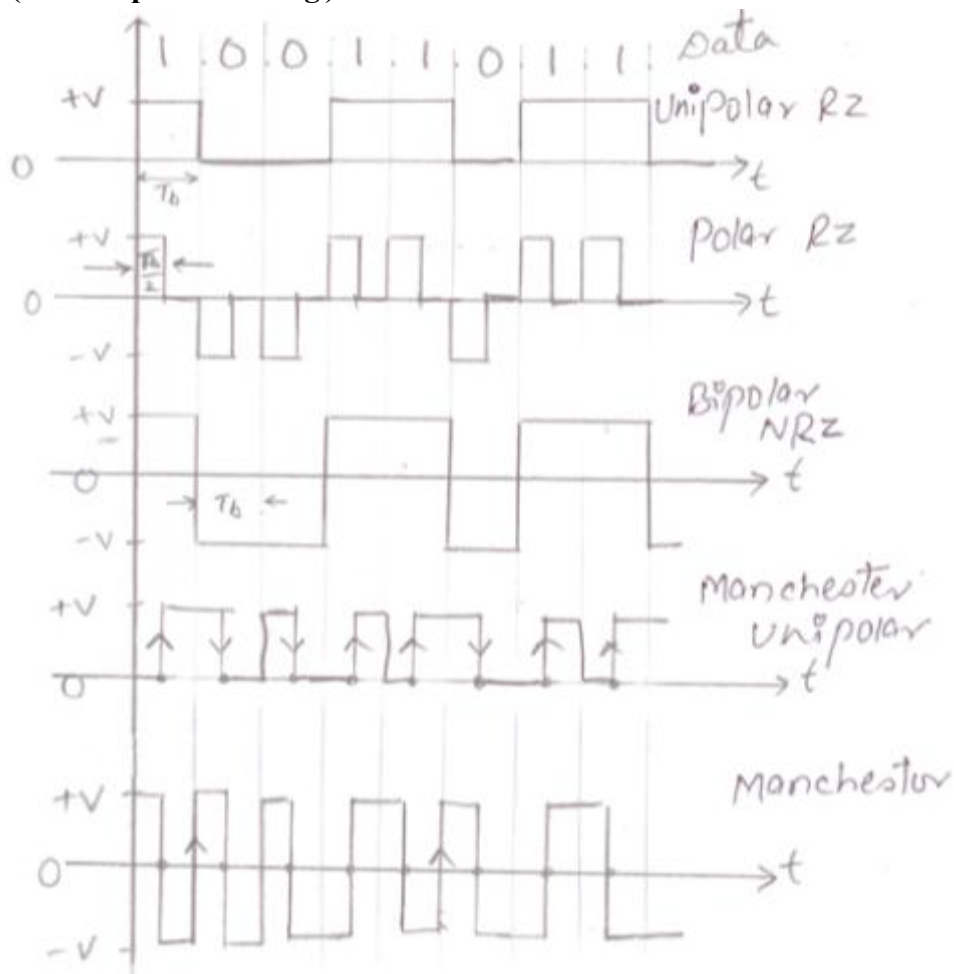 1 0 0 1 1 0 1 1 Data
+V Unipolar RZ
0 t
Tb
+V Polar RZ
Tb/2
0 t
-V
+V Bipolar
NRZ
0 t
Tb
-V
+V Manchester
Unipolar
0 t
+V Manchester
0 t
-V